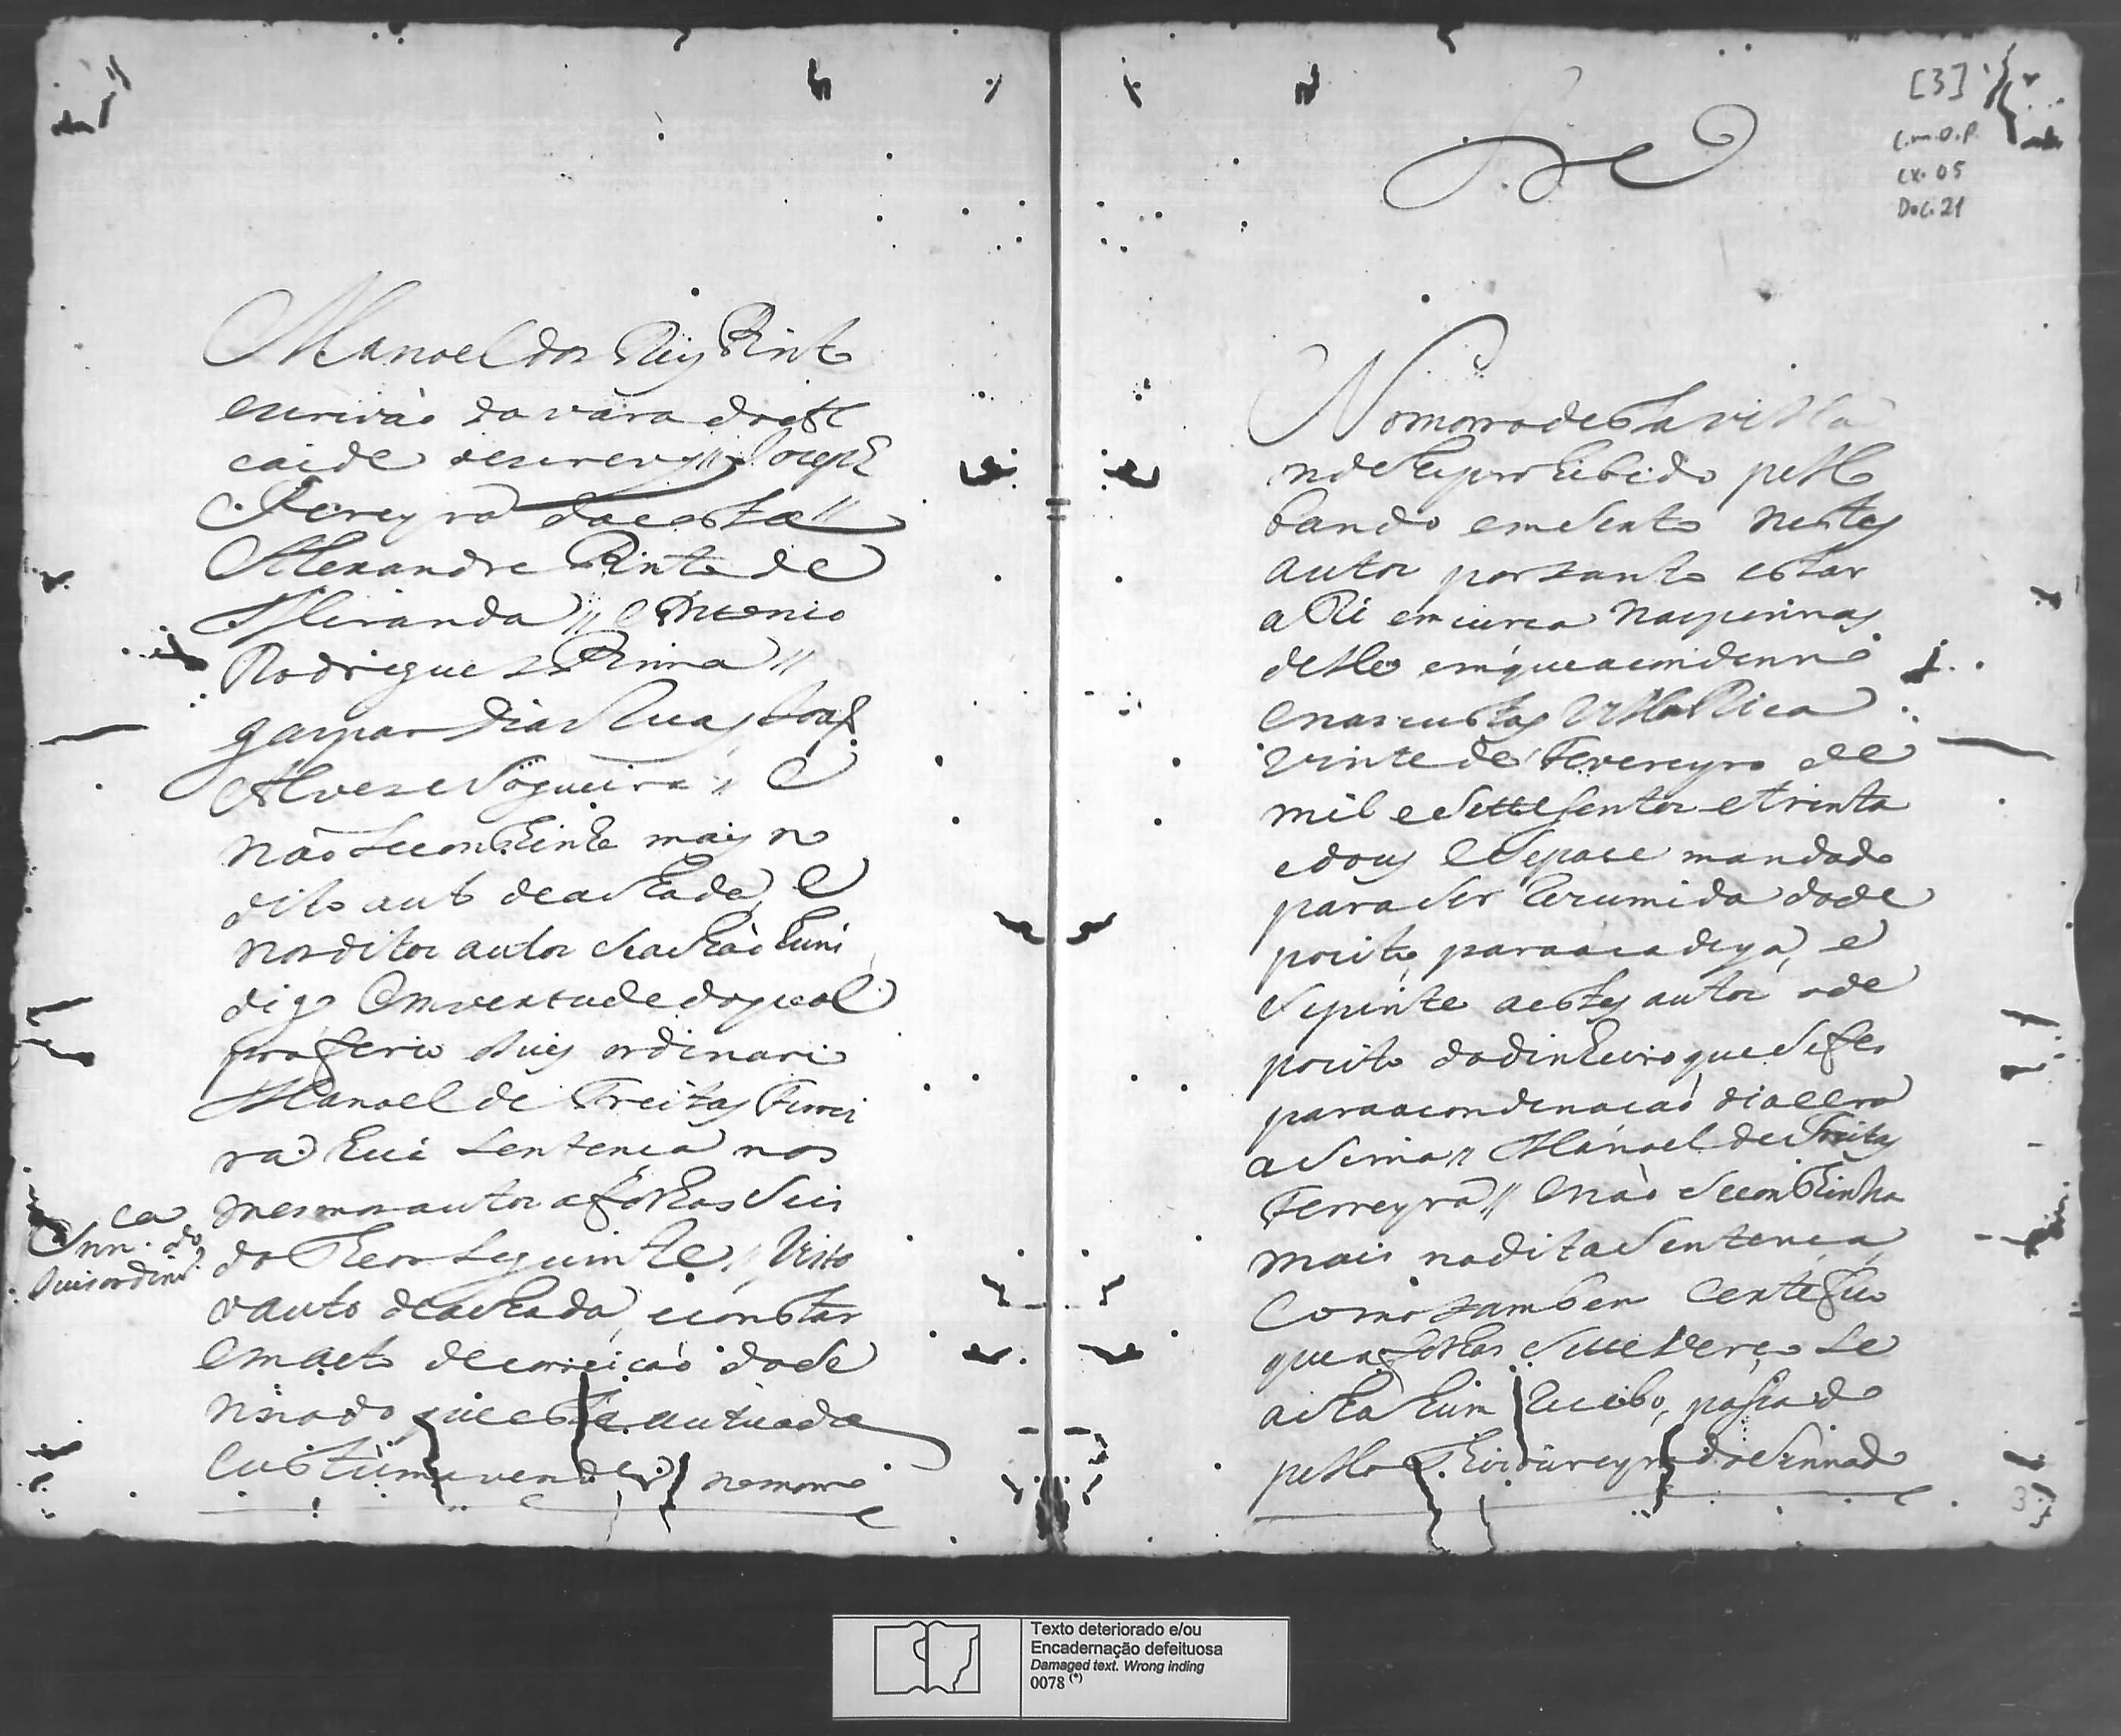 Manoel dos Reys Pinto
escrivão da vara do Al
caide o escrevy // Joseph
Pereyra da Costa //
Alexandre Pinto de
Miranda // Antonio
Rodrigues Penna //
gaspar Dias
Alvese Nogueira // E
não Se continha mais no
dito auto de achada, E
nos ditos autos Se achão huns
digo Em vertude do qual
proferio o Juis ordinario
Manoel de Freitas Ferrei
ra huã Sentenca nos
mesmos autos a folhas Seis
do theor Seguinte, // Visto
o auto de achada, e constar
em acto de correição do Se
nnado que esta autuada
Custuma vender no morro
ca
Snn. do
Juis ordinr.
[3]
C.M.O.P.
CX. 05
Doc. 21
No morro desta villa
no Se prohibido pello
bando emSerto nestes
autos portanto estar
a Ré emcurça nas pennas
delle em que a condenno
e nas custas Villa Rica
vinte de Fevereyro de
mil e Settesentos e trinta
e dous e Se pace mandado
para Ser Rezumida do de
pozito para a cadeya, e
Se junte a estes autos o de
pozito do dinheiro que Se fes
para a condenacaõ dia e era
aSima // Manoel de Freitas
Ferreyra // E não Se continha
mais na dita Sentenca,
Como tambem Certefico
que a folhas Sette Verço Se
acha hum Recibo, passado
pello Thizoureyro do Sennado
3
Texto deteriorado e/ou
Encadernação defeituosa
Damaged text. Wrong inding
0078 (*)